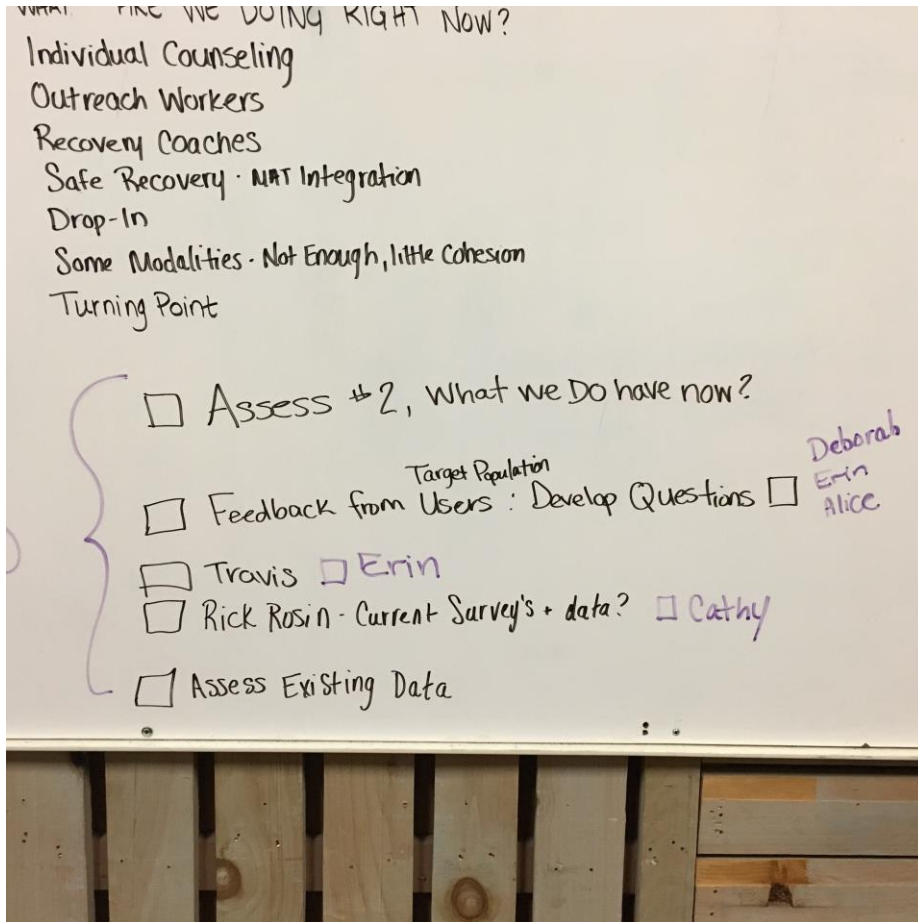 WHAT ARE WE DOING RIGHT NOW?
Individual Counseling
Outreach Workers
Recovery Coaches
Safe Recovery · MAT Integration
Drop-In
Some Modalities · Not Enough, little Cohesion
Turning Point
Assess #2, What we Do have now?
Target Population
Feedback from Users : Develop Questions
Deborah
Erin
Alice
Travis Erin
Rick Rosin - Current Survey's + data? Cathy
Assess Existing Data